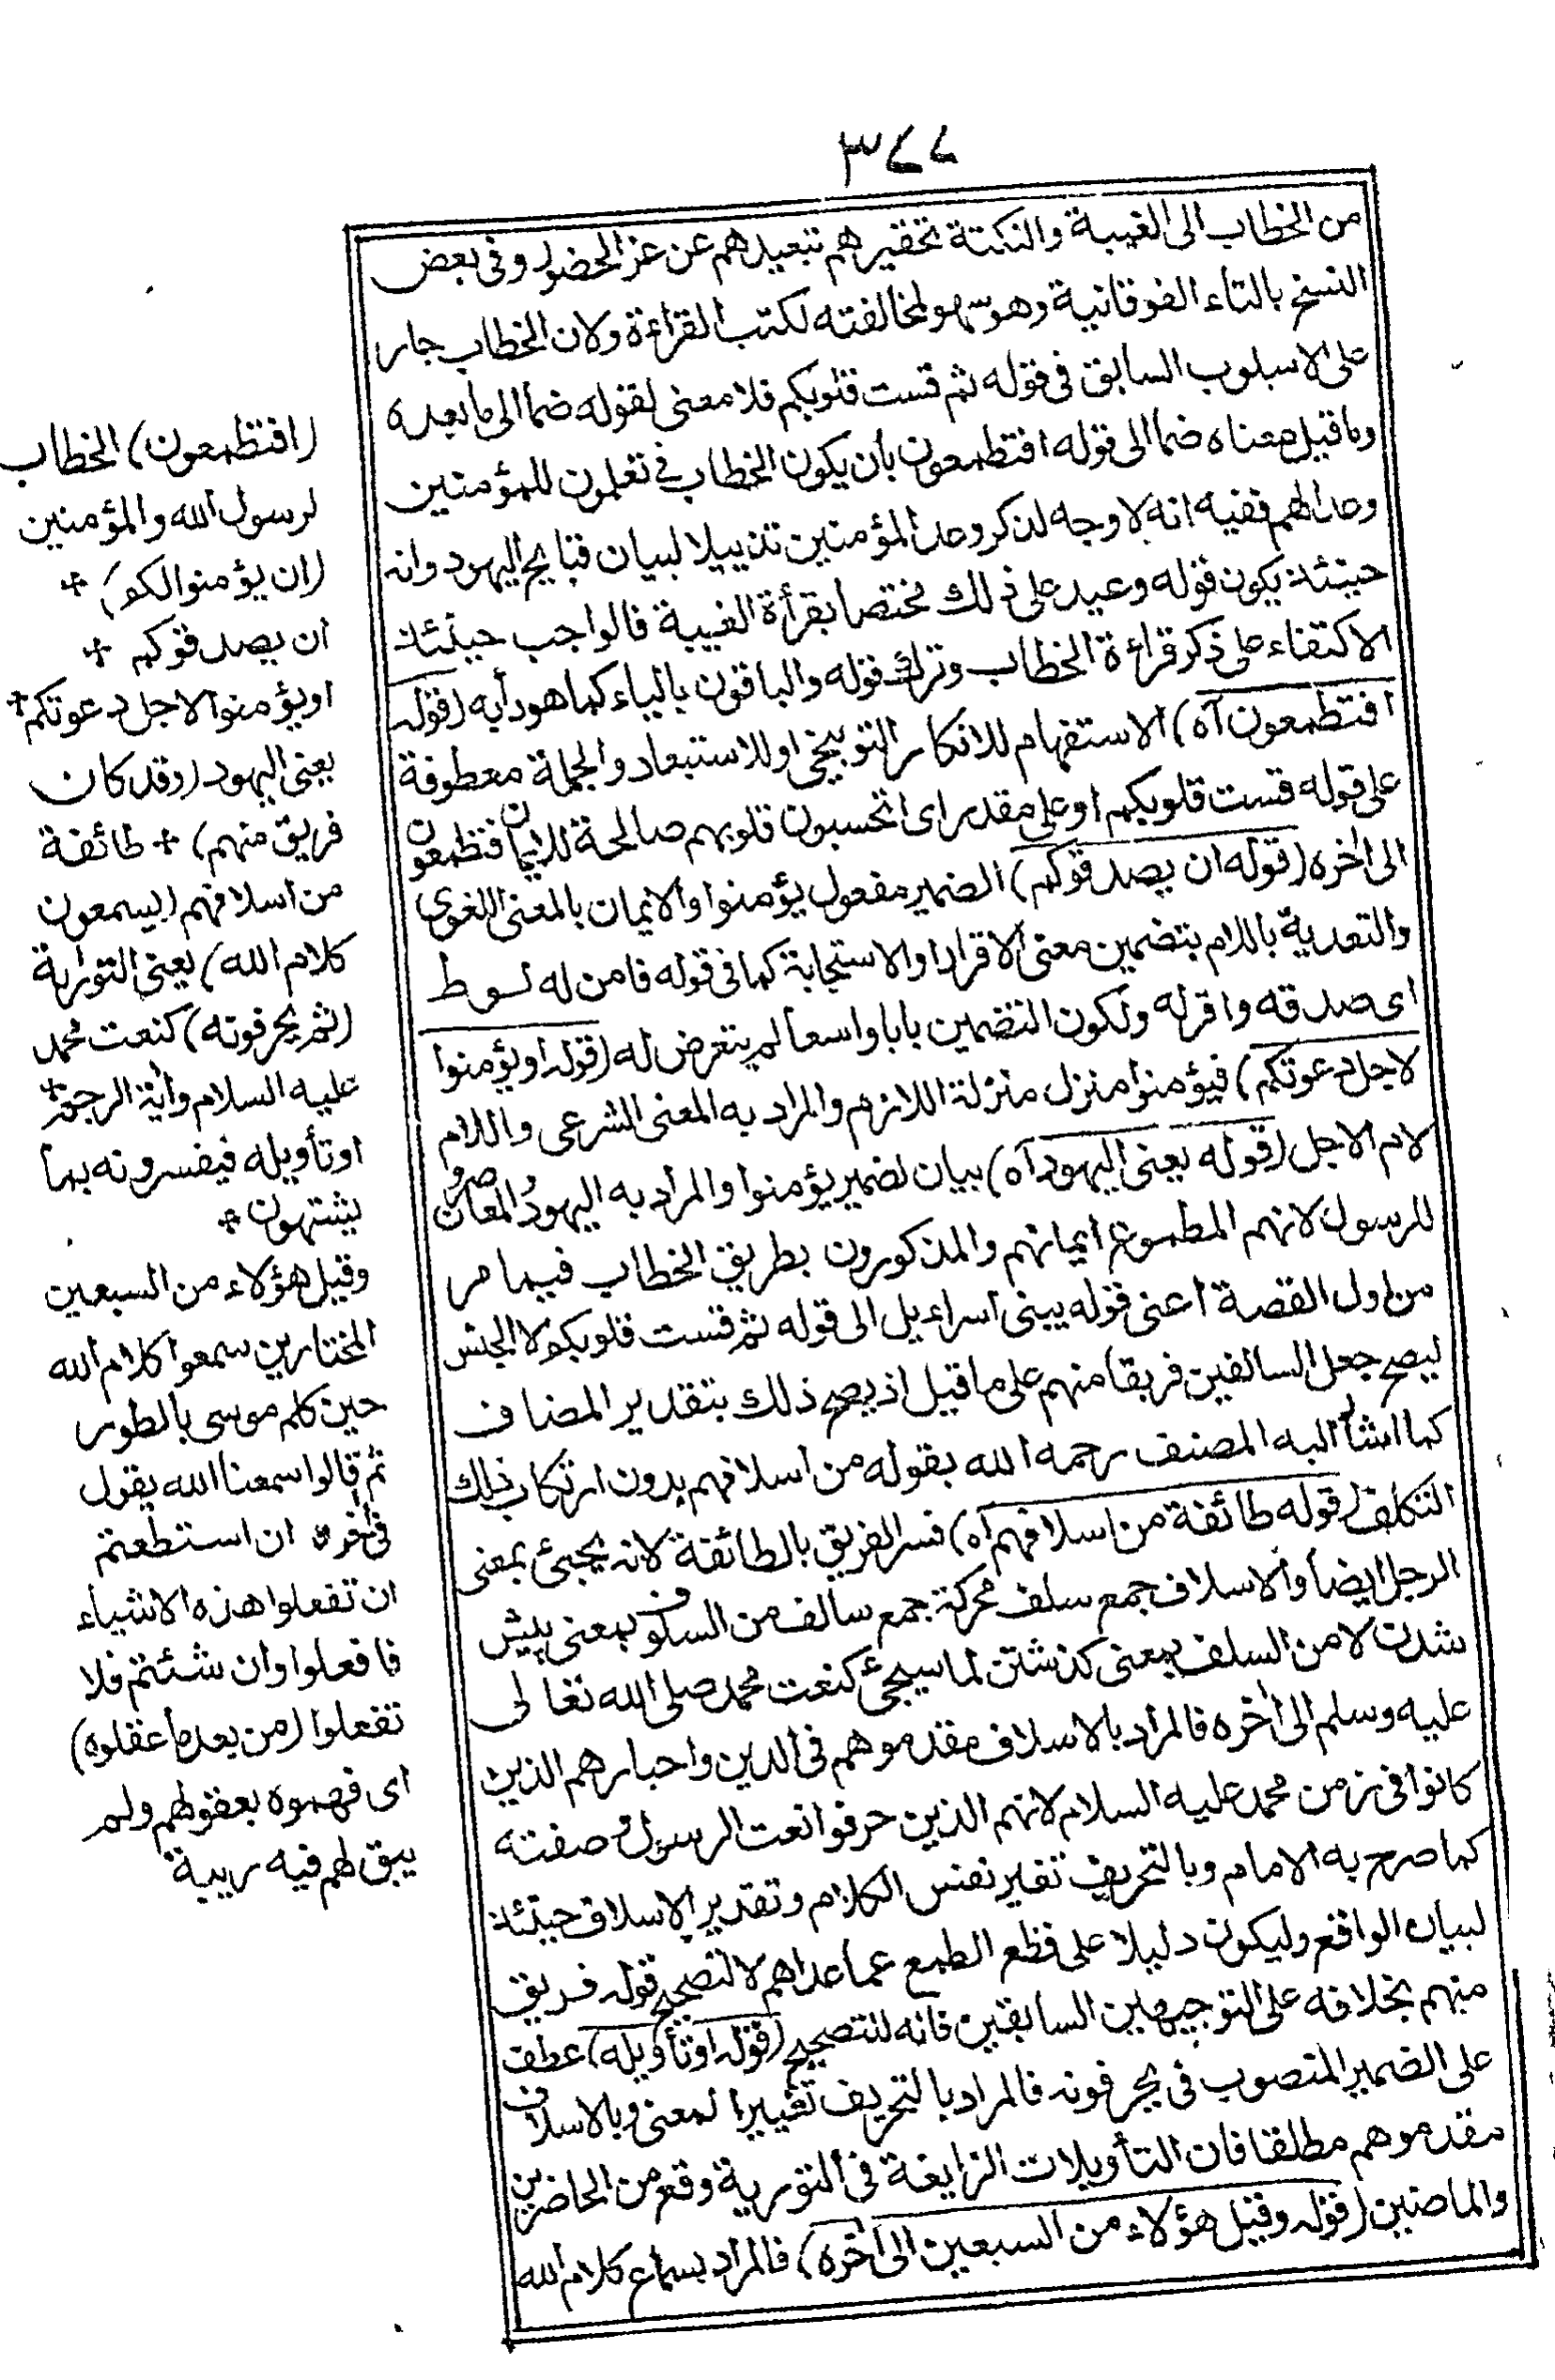 ٣٤٤
من الخطاب الى الغيبة والنكتة تحقيرهم تبعيدهم عن عز الحضور وفى بعض
النسخ بالتاء الفوقانية وهو سهو لمخالفته لكتب القراءة ولان الخطاب جار
على الاسلوب السابق فى قوله ثم قست قلوبكم فلا معنى لقوله ضما الى ما بعده
وما قيل معناه ضما الى قوله افتطمعون بأن يكون الخطاب فى تعلمون للمؤمنين
وعدا لهم ففيه انه لا وجه لذكر وعد المؤمنين تذييلا لبيان قبايح اليهود وانه
حينئذ يكون قوله وعيد على ذلك مختصا بقرأة الغيبة فالواجب حينئذ
الاكتفاء على ذكر قراءة الخطاب وترك قوله والباقون بالياء كما هو دأبه (قوله
افتطمعون آه) الاستفهام للانكار التوبيخى او للاستبعاد والجملة معطوفة
على قوله قست قلوبكم او على مقدر اى اتحسبون قلوبهم صالحة للايمان فتطمعون
الى اخره (قوله ان يصدقوكم) الضمير مفعول يؤمنوا والايمان بالمعنى اللغوى
والتعدية باللام بتضمين معنى الاقرار او الاستجابة كما فى قوله فامن له لوط
اى صدقه واقر له ولكون التضمين بابا واسعا لم يتعرض له (قوله او يؤمنوا
لاجل دعوتكم) فيؤمنوا منزل منزلة اللازم والمراد به المعنى الشرعى واللام
لام الاجل (قوله يعنى اليهود آه) بيان لضمير يؤمنوا والمراد به اليهود المعاصرون
للرسول لانهم المطموع ايمانهم والمذكورون بطريق الخطاب فيما مر
من اول القصة اعنى قوله يبنى اسراءيل الى قوله ثم قست قلوبكم لا الجنس
ليصح جعل السالفين فريقا منهم على ما قيل اذ يصح ذلك بتقدير المضاف
كما اشار اليه المصنف رحمه الله بقوله من اسلافهم بدون ارتكاب ذلك
التكلف (قوله طائفة من اسلافهم آه) فسر الفريق بالطائفة لانه يجيئ بمعنى
الرجل ايضا والاسلاف جمع سلف محركة جمع سالف من السلوف بمعنى پيش
شدن لا من السلف بمعنى كذشتن لما سيجئ كنعت محمد صلى الله تعالى
عليه وسلم الى اخره فالمراد بالاسلاف مقدموهم فى الدين واحبارهم الذين
كانوا فى زمن محمد عليه السلام لانهم الذين حرفوا نعت الرسول وصفته
كما صرح به الامام وبالتحريف تغير نفس الكلام وتقدير الاسلاف حينئذ
لبيان الواقع وليكون دليلا على قطع الطمع عما عداهم لا لتصحيح قوله فريق
منهم بخلافه على التوجيهين السابقين فانه لتصحيح (قوله او تأويله) عطف
على الضمير المنصوب فى يحرفونه فالمراد بالتحريف تغيير المعنى وبالاسلاف
مقدموهم مطلقا فان التأويلات الزايغة فى التورية وقع من الحاضرين
والماضين (قوله وقيل هؤلاء من السبعين الى اخره) فالمراد بسماع كلام الله
(افتطمعون) الخطاب
لرسول الله والمؤمنين
(ان يؤمنوا لكم) +
ان يصدقوكم +
او يؤمنوا لاجل دعوتكم +
يعنى اليهود (وقد كان
فريق منهم) + طائفة
من اسلافهم (يسمعون
كلام الله) يعنى التوراية
(ثم يحرفونه) كنعت محمد
عليه السلام واية الرجم +
او تأويله فيفسرونه بما
يشتهون +
وقيل هؤلاء من السبعين
المختارين سمعوا كلام الله
حين كلم موسى بالطور
ثم قالوا سمعنا الله يقول
فى اخره ان استطعتم
ان تفعلوا هذه الاشياء
فافعلوا وان شئتم فلا
تفعلوا (من بعد ما عقلوه)
اى فهموه بعقولهم ولم
يبق لهم فيه ريبة